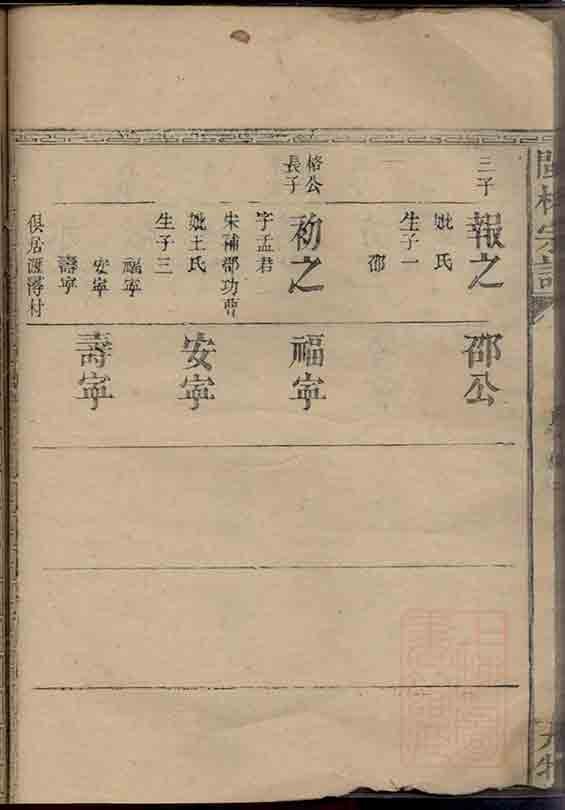 三子
報之
妣氏
生子一
邵
格公
長子
初之
字孟君
朱補郡功曹
妣王氏
生子三
福寧
安寧
壽寧
俱居
村
邵公
福寧
安寧
壽寧
宗譜